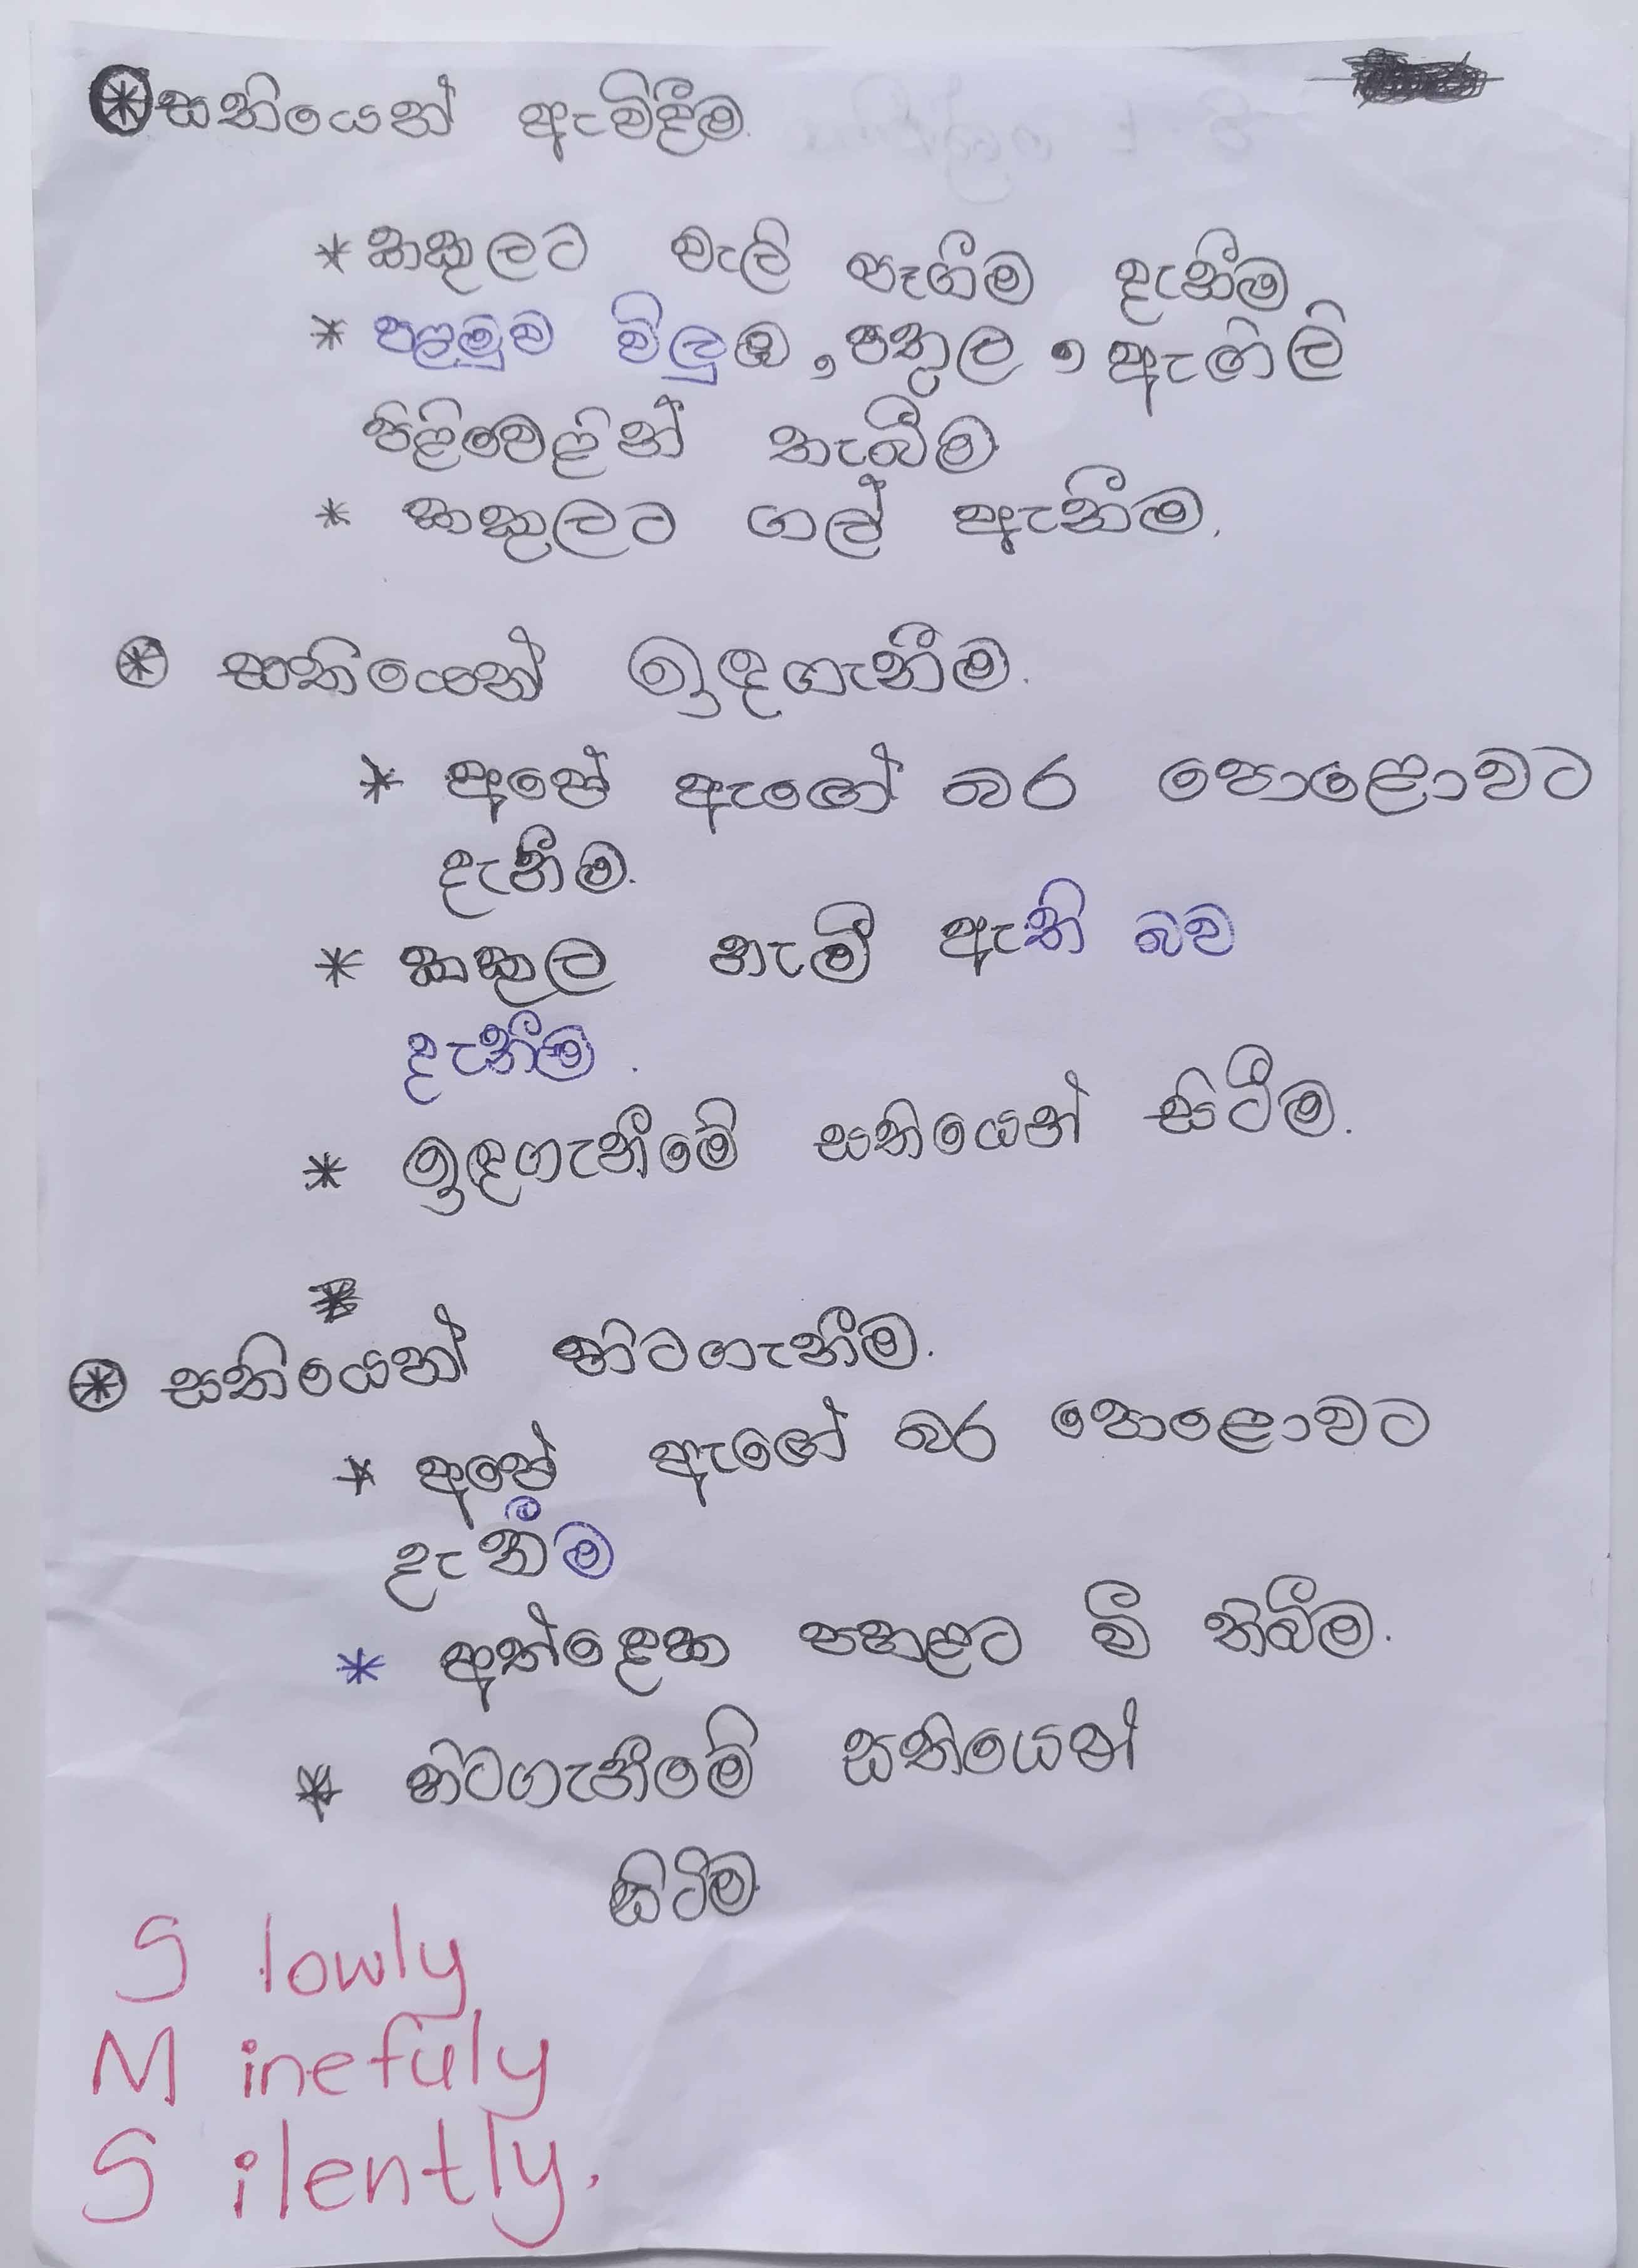 ⊛ සතියෙන් ඇවිදීම.
* කකුලට වැලි පෑගීම දැනීම
* පළමුව විලුඹ, පතුල, ඇඟිලි
පිළිවෙළින් තැබීම
* කකුලට ගල් ඇනීම.
⊛ සතියෙන් ඉඳගැනීම.
* අපේ ඇඟේ බර පොළොවට
දැනීම.
* කකුල නැමී ඇති බව
දැනීම.
* ඉඳගැනීමේ සතියෙන් සිටීම.
⊛ සතියෙන් හිටගැනීම.
* අපේ ඇඟේ බර පොළොවට
දැනීම
* අත්දෙක පහළට වී තිබීම.
* හිටගැනීමේ සතියෙන්
සිටීම
S lowly
M inefuly
S ilently.